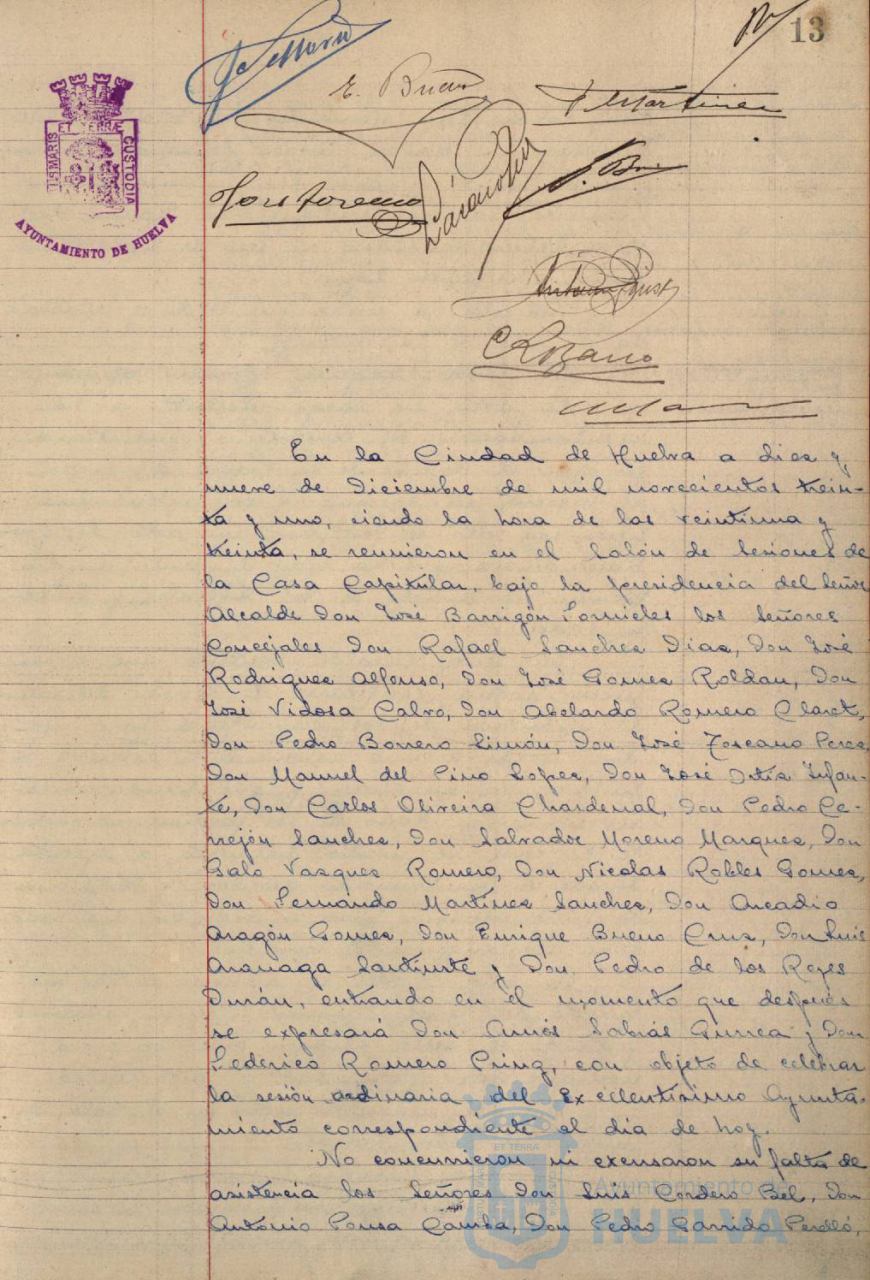 13
E. Bueno
F Martinez
José Moreno
C Lozano
ET TERRÆ
IS MARIS
CUSTODIA
AYUNTAMIENTO DE HUELVA
En la Ciudad de Huelva a diez y
nueve de Diciembre de mil novecientos trein-
ta y uno, siendo la hora de las veintiuna y
treinta, se reunieron en el Salón de Sesiones de
la Casa Capitular, bajo la presidencia del Señor
Alcalde Don José Barrigón Fornieles los Señores
Concejales Don Rafael Sanchez Diaz, Don José
Rodriguez Alfonso, Don José Gomez Roldan, Don
José Vidosa Calvo, Don Abelardo Romero Claret,
Don Pedro Borrero Limón, Don José Toscano Perez,
Don Manuel del Pino Lopez, Don José Ortiz Infan-
te, Don Carlos Oliveira Chardenal, Don Pedro Ce-
rrejón Sanchez, Don Salvador Moreno Marquez, Don
Galo Vazquez Romero, Don Nicolas Robles Gomez,
Don Fernando Martinez Sanchez, Don Arcadio
Aragón Gomez, Don Enrique Bueno Cruz, Don Luis
Aranaga Santiurte y Don Pedro de los Reyes
Durán, entrando en el momento que después
se expresará Don Amós Sabrás Gurrea y Don
Federico Romero Prinz, con objeto de celebrar
la sesión ordinaria del Excelentísimo Ayunta-
miento correspondiente al dia de hoy.
No concurrieron ni excusaron su falta de
asistencia los Señores Don Luis Cordero Bel, Don
Antonio Pousa Camba, Don Pedro Garrido Perelló,
ET TERRA
Ayuntamiento de
HUELVA